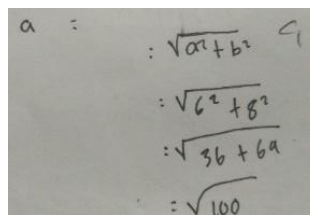 a :
: √a² + b²
: √6² + 8²
: √36 + 64
: √100